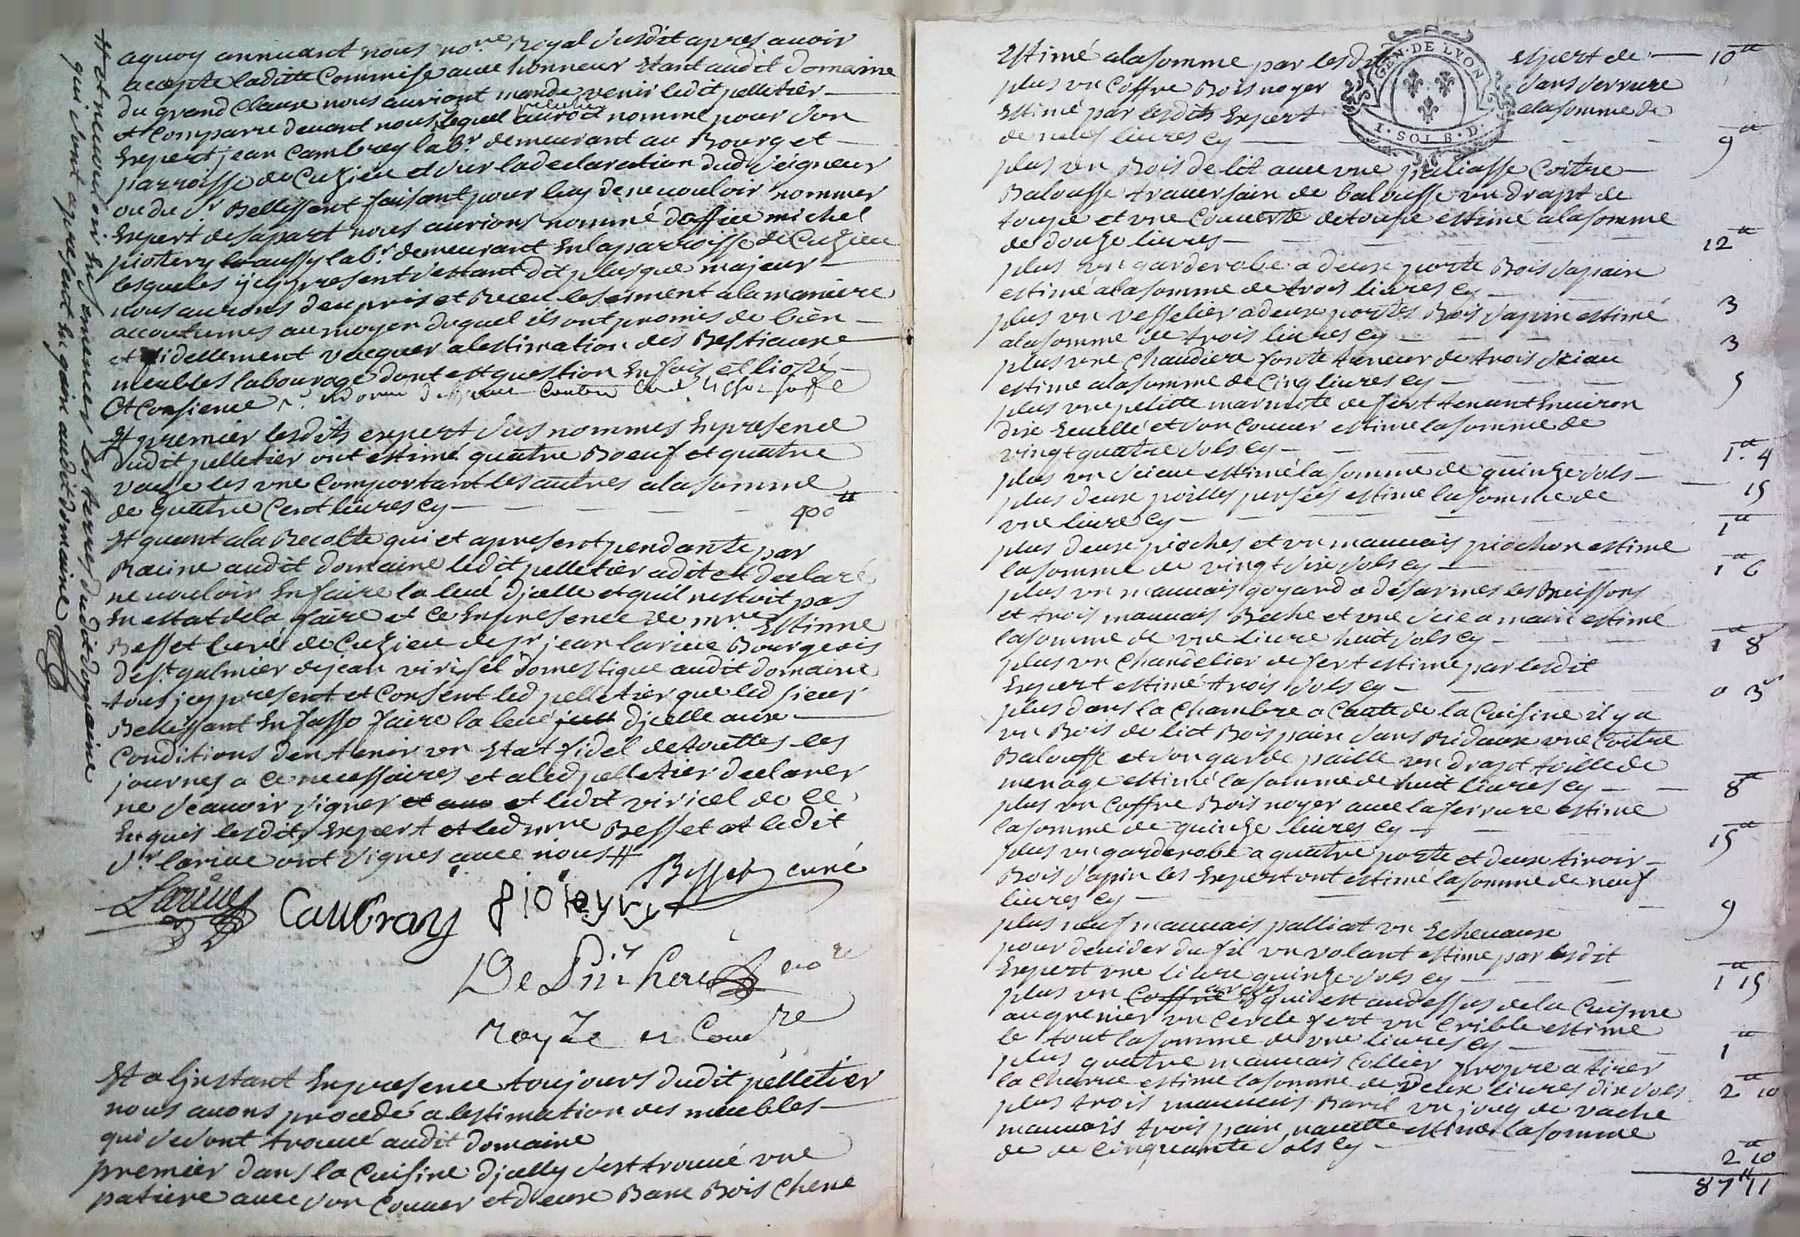 aquoy annuant nous no.re Royal susdit apres avoir
accepte ladite Commise avec honneur Etant audit domaine
du grand Clause nous aurions mande venir ledit pelletier
et Comparu devant nous lequel auroit nommé pour son
Expert jean Cambray lab.r demeurant au Bourg et
parroisse de Cuzieu et sur la declaration dud seigneur
ou du s.r Bellissent faisant pour luy de ne vouloir nommer
Expert de sa part nous aurions nommé doffice michel
piotery aussy lab.r demeurant En la parroisse de Cuzieu
lesquels jcy present sestant dit plus que majeur
nous aurons deux pris et Receu le serment a la maniere
accoutumes au moyen duquel ils ont promis de bien
et fidellement vacquer a lestimation des Bestiaux
meubles labourage dont est question En fois
et Consience
Et premier lesdits expert sus nommes En presence
dudit pelletier ont estimé quatre Boeuf et quatre
vache les une Comportant les autres a la somme
de quatre Cent livres Cy 400 ₶
Et quant a la Recolte qui et a present pendante par
Racine audit domaine ledit pelletier a dit et declaré
ne vouloir En faire la leué djcelle et quil nestoit pas
En estat de la faire et ce En presence de m.re Estienne
Besset Curé de Cuzieu de s.r jean larive Bourgeois
de s.t galmier de jean viricel domestique audit domaine
tous jcy present et Consent led pelletier que led sieur
Bellissant En fasse faire la leué djcelle aux
Conditions den tenir un Etat fidel de touttes les
journes a ce necessaires et a led pelletier declarer
ne scavoir signer et ledit viricel de ce
Enquis lesdits Expert et led m.re Besset et ledit
s.r larive ont signes avec nous #
Besset curé
Larive
Caubray
pioteyry
no.re
royal
Et a ljnstant En presence toujours dudit pelletier
nous avons procedé a lestimation des meubles
qui se sont trouvé audit domaine
premier dans la Cuisine djcelly sest trouvé une
patiere avec son Couver et deux Banc Bois Chene
# et neuvu
qui sont a present En grain audit domaine
Estimé a la somme par lesdit expert de 10 ₶
plus un Coffre Bois noyer sans serrure
Estimé par lesdits Expert a la somme de
de neuf livres Cy 9 ₶
GEN. DE LYON
1. SOL 8. D.
plus un Bois de lit avec une palliasse Coitre
Balouffe traversain de balouffe un drapt de
toupe et une Couverte de toupe estimé a la somme
de douze livres 12 ₶
plus un garderobe a deux porte Bois sapain
estimé a la somme de trois livres Cy 3
plus un vesselier a deux portes Bois sapin estimé
a la somme de trois livres Cy 3
plus une Chaudiere fonte teneur de trois seiau
estimé a la somme de Cinq livres Cy 5
plus une petitte marmite de fert tenant Environ
dix Ecuellé et son Couver estimé la somme de
vingt quatre sols Cy 1 ₶ 4
plus un seiau estimé la somme de quinze sols 15
plus deux poilles persées estimé la somme de
une livre Cy 1 ₶
plus deux pioches et un mauvais piochon estimé
la somme de vingt six sols Cy 1 ₶ 6
plus un mauvais goyard a desarmes les Buissons
et trois mauvais Bache et une scie a main estimé
la somme de une livre huit sols Cy 1 ₶ 8
plus un Chandelier de fert estimé par lesdit
Expert estimé trois sols Cy 0 3 s
plus dans la Chambre a Cauté de la Cuisine il y a
un Bois de lict Bois pain sans Ridaux une Coitre
Balouffe et son garde paille un drapt toille de
menage estimé la somme de huit livres Cy 8 ₶
plus un Coffre Bois noyer avec la serrure estimé
la somme de quinze livres Cy 15 ₶
plus un garderobe a quatre porte et deux tiroir
Bois sapin les Expert ont estimé la somme de neuf
livres Cy 9
plus neuf mauvais palliat un Echevaux
pour devider du fil un volant estimé par lesdit
Expert une livre quinze sols Cy 1 ₶ 15
plus un Coffre qui est au dessus de la Cuisine
au grenier un Cercle fert un Crible estimé
le tout la somme de une livres Cy 1 ₶
plus quatre mauvais Collier propre a tirér
la Charue estimé la somme de deux livres dix sols 2 ₶ 10
plus trois mauvais Baril un joug de vache
mauvais trois pair navette estimé la somme
de de Cinquante sols Cy 2 ₶ 10
87 ₶ 11